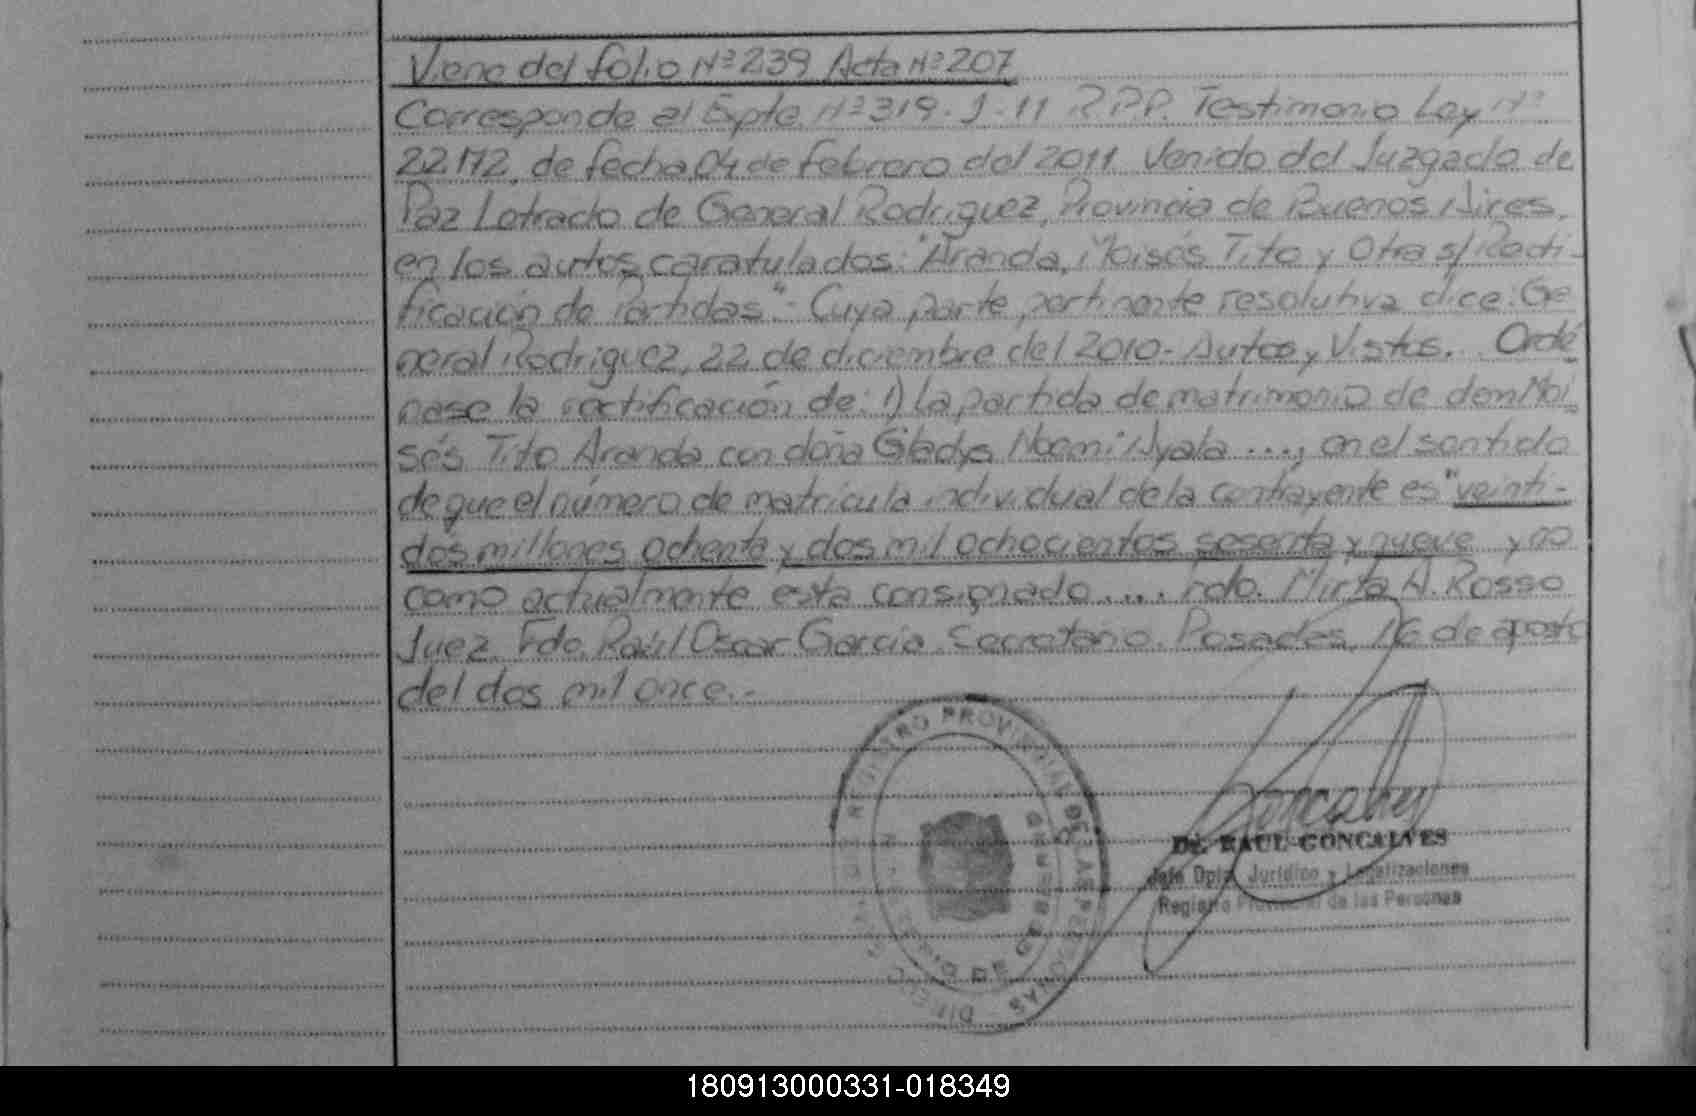 Viene del folio Nº 239 Acta Nº 207
Corresponde al Expte. Nº 319-J-11 R.P.P. Testimonio Ley Nº
22.172, de fecha 04 de febrero del 2011. Venido del Juzgado de
Paz Letrado de General Rodriguez, Provincia de Buenos Aires,
en los autos caratulados: "Aranda, Moisés Tito y Otra s/ Recti-
ficación de Partidas".- Cuya parte pertinente resolutiva dice: Ge
neral Rodriguez, 22 de diciembre del 2010.- Autos y Vistos... Ordé
nase la rectificación de: 1) La partida de matrimonio de don Moi_
sés Tito Aranda con doña Gladys Noemi Ayala ..., en el sentido
de que el número de matrícula individual de la contrayente es "veinti-
dos millones ochenta y dos mil ochocientos sesenta y nueve y no
como actualmente esta consignado.... Fdo. Mirta A. Rosso
Juez. Fdo. Raúl Oscar García. Secretario. Posadas, 16 de agosto
del dos mil once.-
REGISTRO PROVINCIAL DE LAS PERSONAS
DE GOBIERNO
Goncalves
Dr. RAUL GONCALVES
Jefe Dpto. Jurídico y Legalizaciones
Registro Provincial de las Personas
180913000331-018349